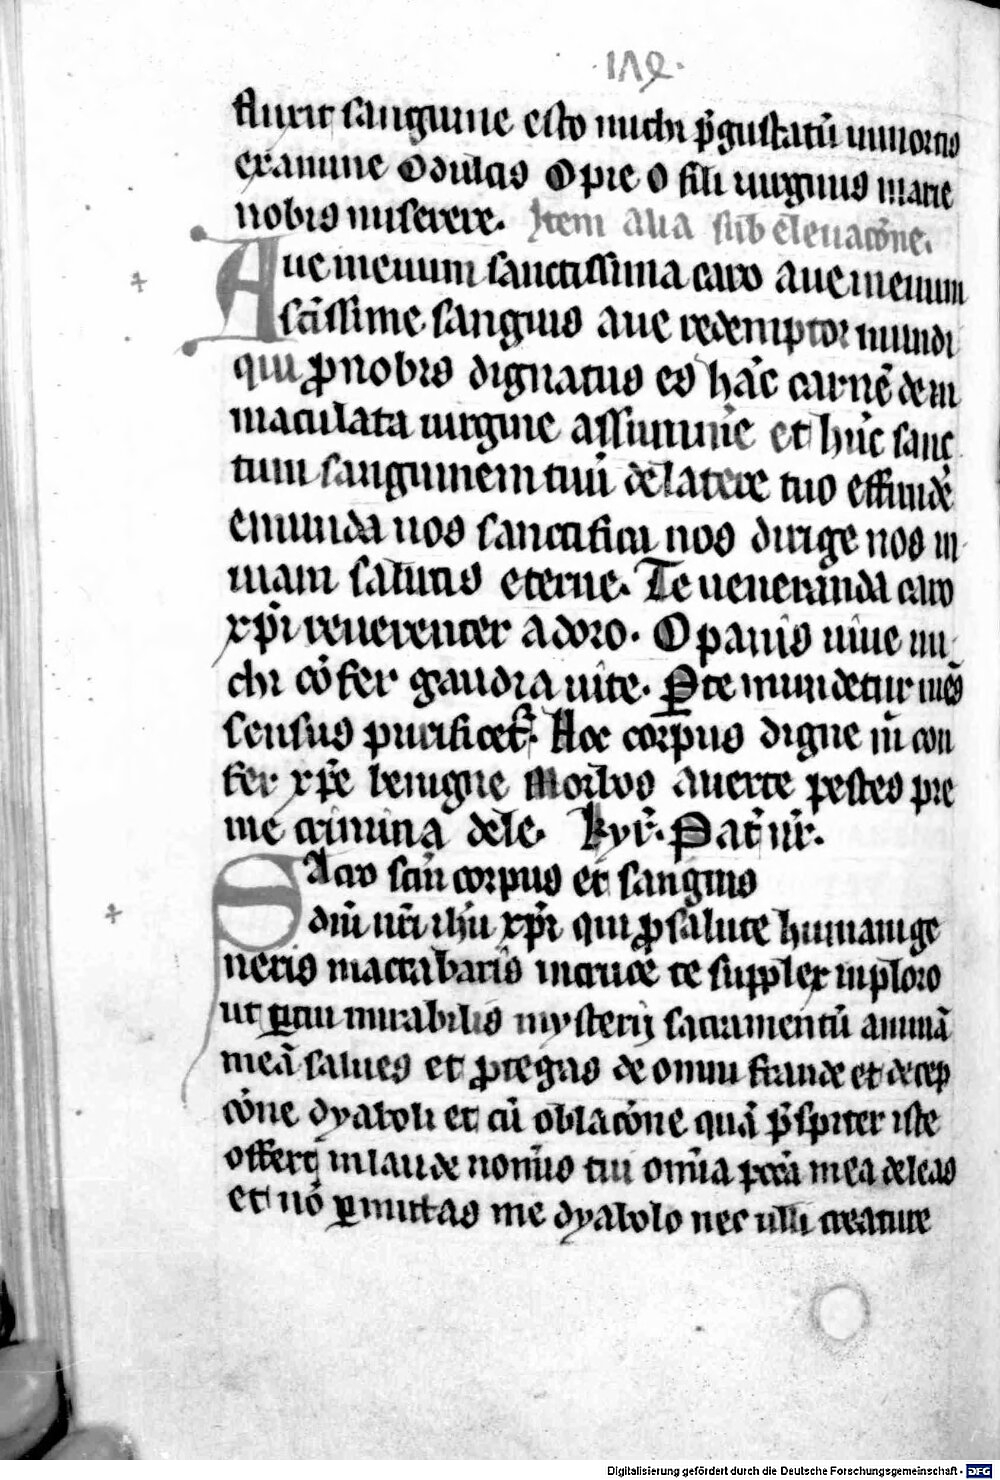 ·119·
fluxit sanguine esto michi p̄gustatū in mortis
examine O dulcis O pie o fili uirginis marie
nobis miserere. Item alia sub eleuacōne.
Aue in euum sanctissima caro aue in euum
scīssime sanguis aue redemptor mundi
qui ꝓ nobis dignatus es hāc carnē de in
maculata uirgine assumme et hūc sanc
tum sanguinem tuū de latere tuo effundē
emunda nos sanctifica nos dirige nos in
uiam salutis eterne. Te ueneranda caro
xp̄i reuerenter adoro. O panis uiue mi
chi cōfer gaudia uite. Ꝑ te mundetur mēs
sensus purificetur. Hoc corpus digne m̄ con
fer xp̄e benigne Morbos auerte pestes pre
me crimina dele. kyr̄. Pat̄ nr̄.
Sacro scm̄ corpus et sanguis
dn̄i nr̄i ihū xp̄i qui ꝓ salute humani ge
neris mactabaris in cruce te supplex inploro
ut ꝑ tui mirabilis mysterij sacramentū animā
meā salues et ꝓtegas de omni fraude et decep
cōne dyaboli et cū oblacōne quā p̄sƥiter iste
offert in laude nomīs tui omīa pccā mea deleas
et nō ꝑmittas me dyabolo nec ulli creature
Digitalisierung gefördert durch die Deutsche Forschungsgemeinschaft - DFG